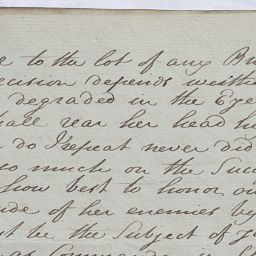 to the lot of any
decision depends
degraded in the Eye
shall rear her head
do I repeat never did
so much on the Suc
how best to honor
ide of her enemies by
st be the Subject of
as